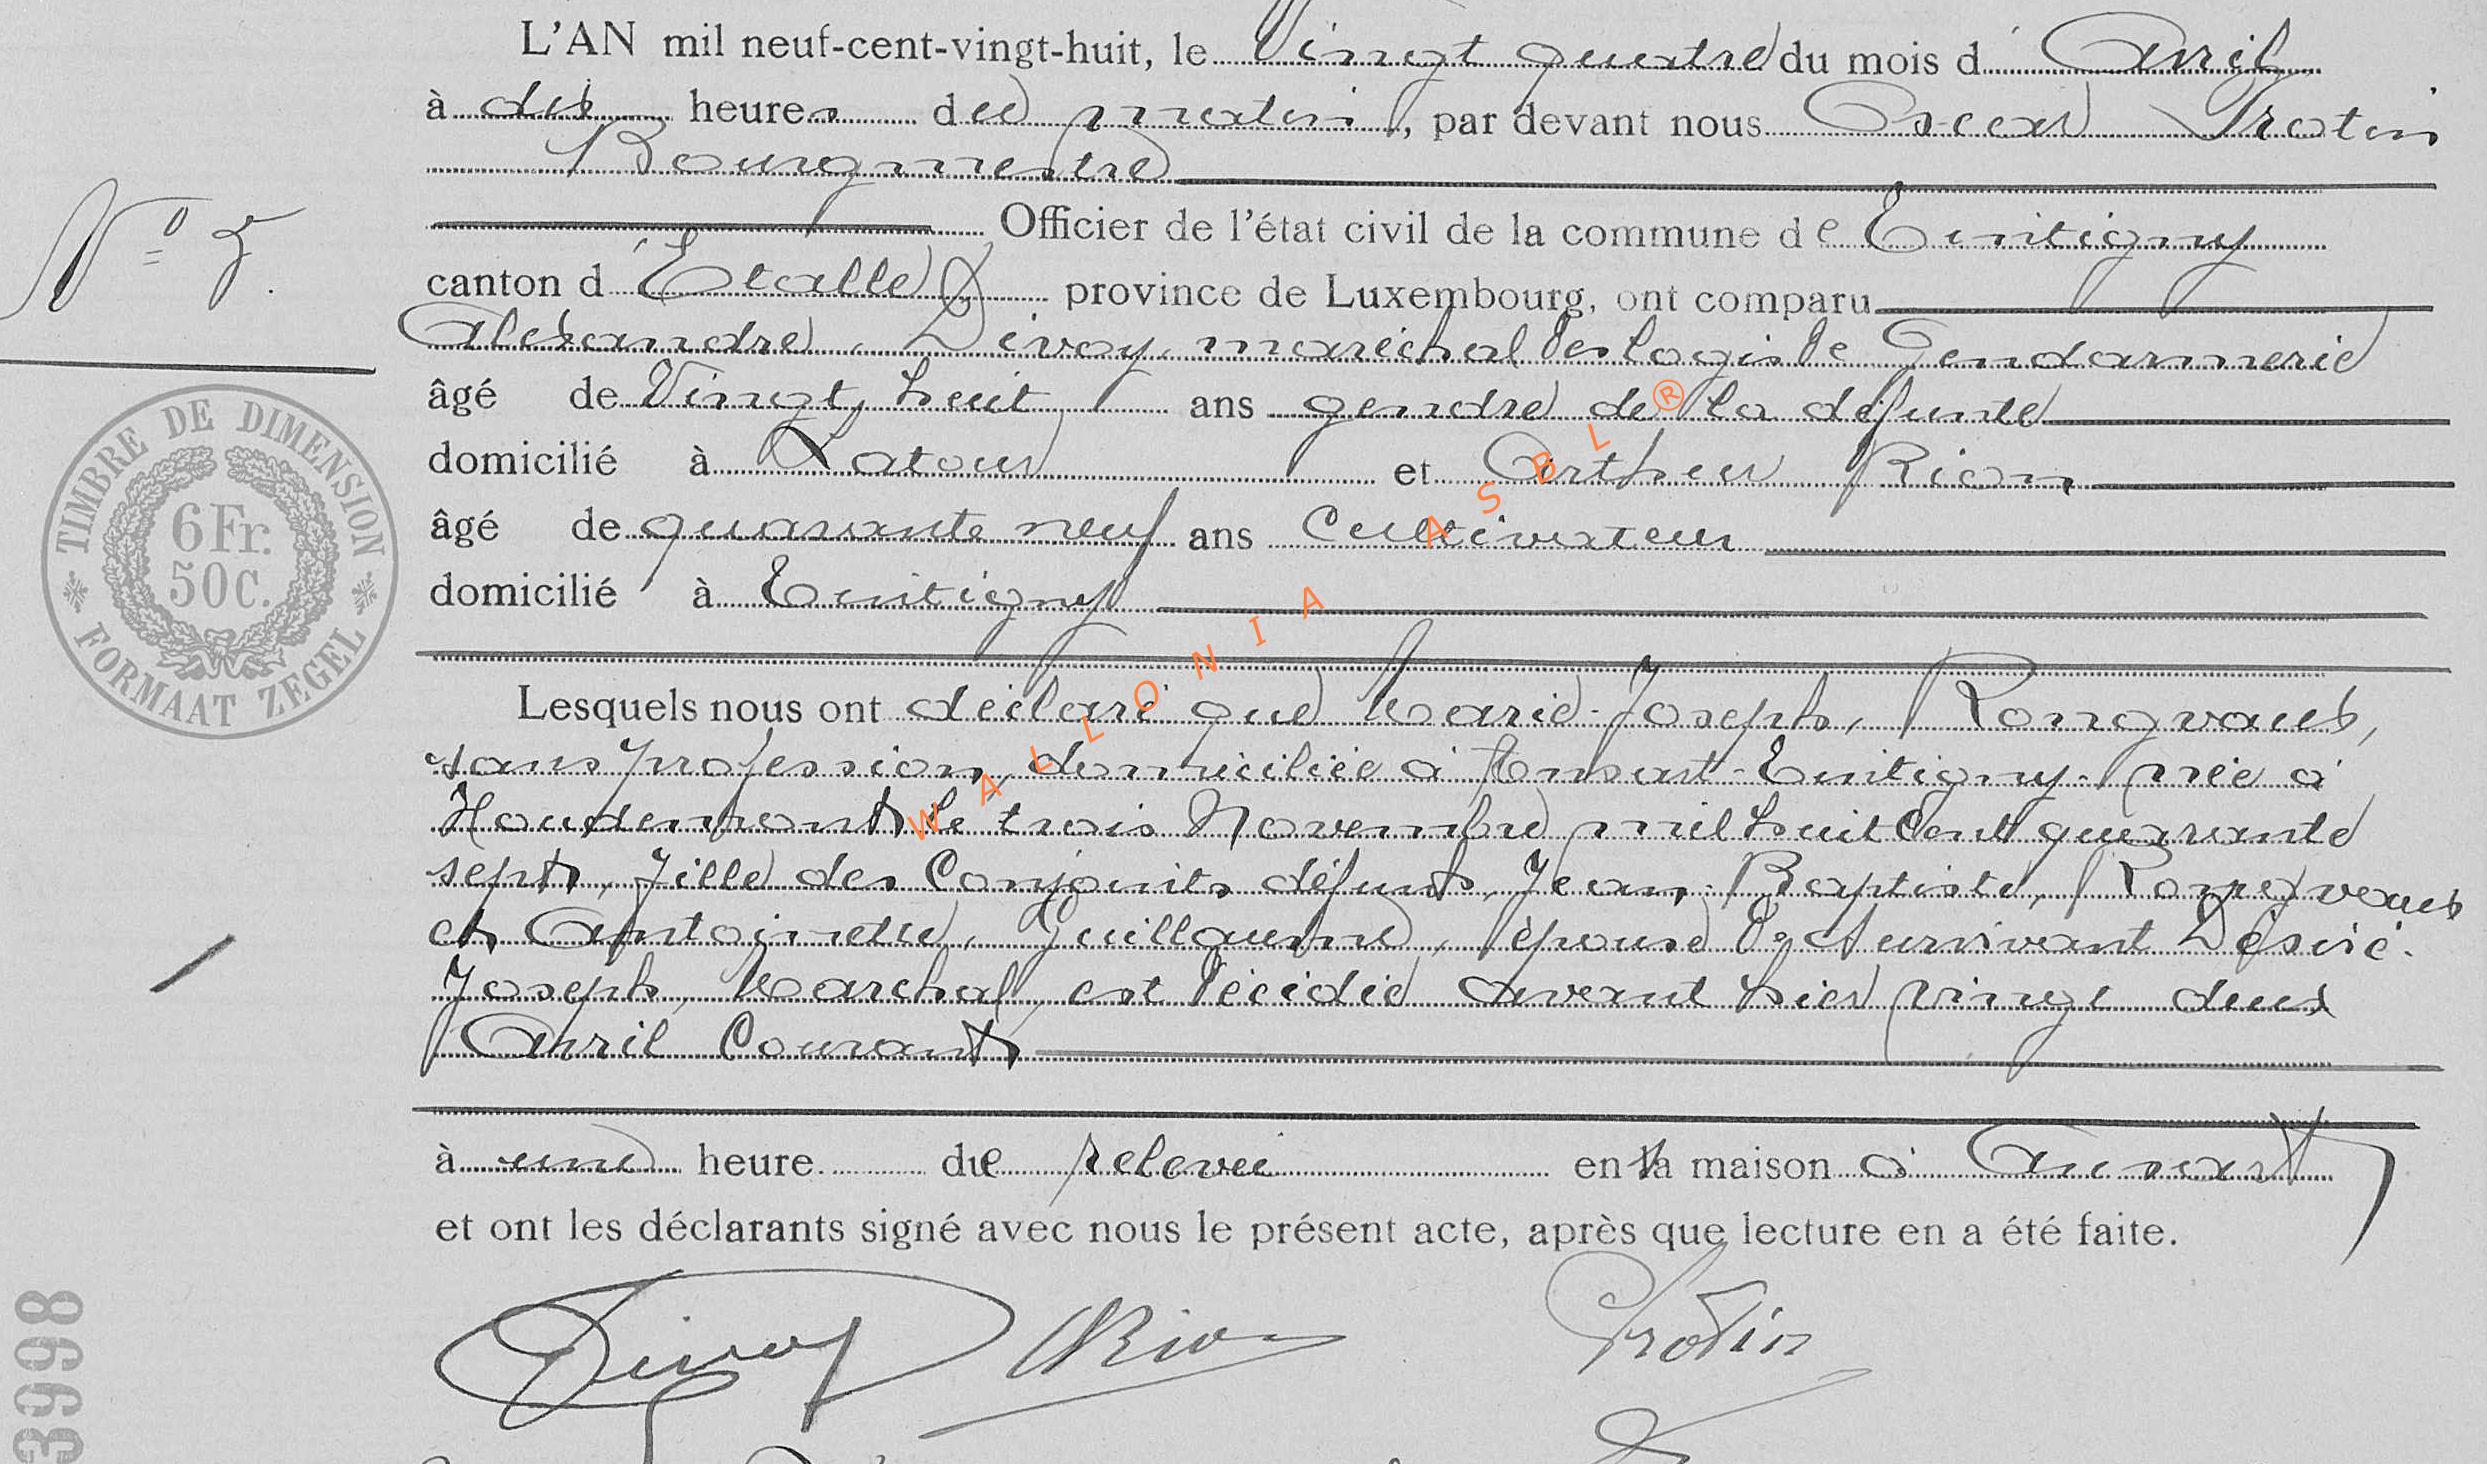 L'AN mil neuf-cent-vingt-huit, le Vingt quatre du mois d' Avril
à dix heures du matin, par devant nous Oscar Protin
Bourgmestre
N° 5.
Officier de l'état civil de la commune de Tintigny
canton d'Etalle province de Luxembourg, ont comparu
Alexandre, Devoy, maréchal des logis de Gendarmerie
âgé de Vingt huit ans gendre de la défunte
domicilié à Latour et Arthur Rion
âgé de quarante neuf ans Cultivateur
domicilié à Tintigny
TIMBRE DE DIMENSION
6 Fr.
50 C.
FORMAAT ZEGEL
Lesquels nous ont déclaré que Marie-Joseph, Rongvaux,
sans profession, domiciliée à Ansart-Tintigny. née à
Houdemont le trois Novembre mil huit Cent quarante
sept, fille des Conjoints défunts, Jean-Baptiste, Rongvaux
et Antoinette, Guillaume, épouse de survivant Désiré.
Joseph, Marchal, est décédée avant hier vingt deux
Avril Courant
à une heure de relevée en sa maison à Ansart
et ont les déclarants signé avec nous le présent acte, après que lecture en a été faite.
Devoy ARion Protin
3998
WALLONIA ASBL ®